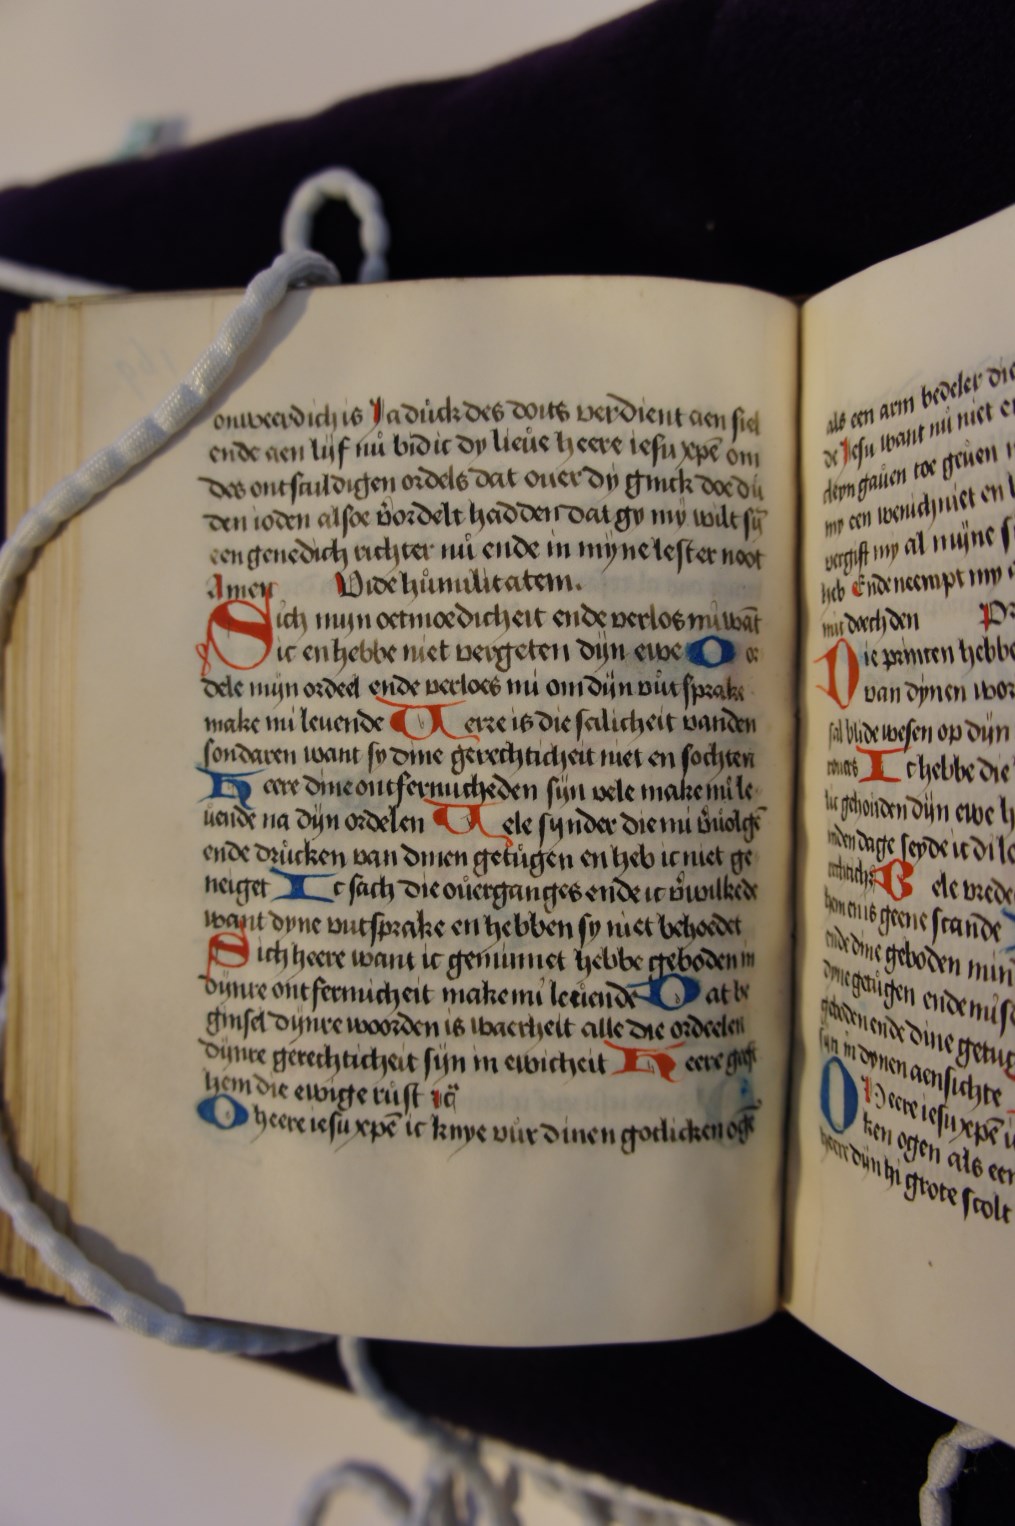 onweerdich is Ja důck des doits verdient aen siel
ende aen lijf nů bidic dy lieůe heere iesu xpē om
des ontsculdigen ordels dat ouer dy ginck doe du
den ioden alsoe v̊ordelt hadden dat gy my wilt sy̅
een genedich richter nů ende in myne lester noot
Amen Vide hůmilitatem.
Sich mijn oetmoedicheit ende verlos mi wāt
ic en hebbe niet vergeten dijn ewe O or
dele mijn ordeel ende verloes mi om dijn vůt sprake
make mi leuende Verre is die salicheit vanden
sondaren want sy dine gerechticheit niet en sochten
Heere dine ontfermicheden sijn vele make mi le
uende na dijn ordelen Vele synder die mi v̊uolgē
ende drůcken van dinen getůgen en heb ic niet ge
neiget Ic sach die oůerganges ende ic v̊wilkede
want dyne vutsprake en hebben sy niet behoedet
Sich heere want ic gemīnnet hebbe geboden in
dijnre ontfermicheit make mi leuende Dat be
ginsel dijnre woorden is waerheit alle die ordeelen
dijnre gerechticheit sijn in ewicheit Heere geef
hem die ewige růst
O heere iesu xpē ic knye vůr dinen godlicken ogē
als een arm bedeler die
de Jesu want nů niet en
cleyn gaůen toe geůen
my een wenich niet en
vergift my al mijne
heb Ende neempt my
mit doechden Pr
Die printen hebbe
van dynen wor
sal blide wesen op dijn
Ic hebbe die
lic gehouden dijn ewe h
inden dage seyde ic di
Vele vrede
hem en is geene scande
ende dine geboden min
dyne getůgen ende
geboden ende dine getug
sijn in dynen aensichte
O Heere iesu xpē
ken ogen als een
heere dijn hi grote scolt